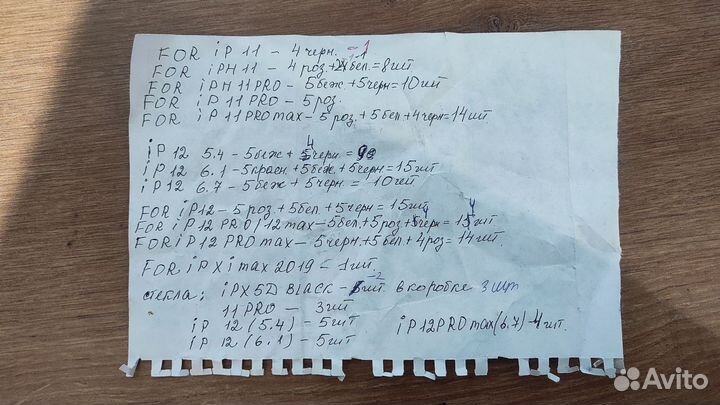 FOR iP 11 - 4 черн. - 1
FOR iPH 11 - 4 роз. + 4 бел. = 8 шт
FOR iPH 11 PRO - 5 беж. + 5 черн = 10 шт
FOR iP 11 PRO - 5 роз.
FOR iP 11 PRO max - 5 роз. + 5 бел + 4 черн = 14 шт
iP 12 5.4 - 5 беж + 4 черн = 9
iP 12 6.1 - 5 красн. + 5 беж + 5 черн = 15 шт
iP 12 6.7 - 5 беж + 5 черн. = 10 шт
FOR iP 12 - 5 роз + 5 бел + 5 черн = 15 шт
FOR iP 12 PRO / 12 max - 5 бел. + 5 роз + 4 черн = 14 шт
FOR iP 12 PRO max - 5 черн. + 5 бел. + 4 роз = 14 шт.
FOR iP X i max 2019 - 1 шт.
стекла: iPX 5D BLACK - шт. -2 в коробке 3 шт
11 PRO - 3 шт
iP 12 (5.4) - 5 шт iP 12 PRO max (6.7) - 4 шт.
iP 12 (6.1) - 5 шт
Avito